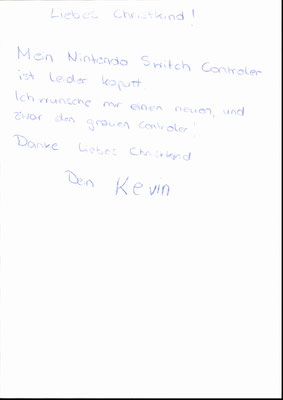 Liebes Christkind!
Mein Nintendo Switch Controler
ist leider kaputt.
Ich wünsche mir einen neuen, und
zwar den grauen Controler!
Danke Liebes Christkind
Dein Kevin